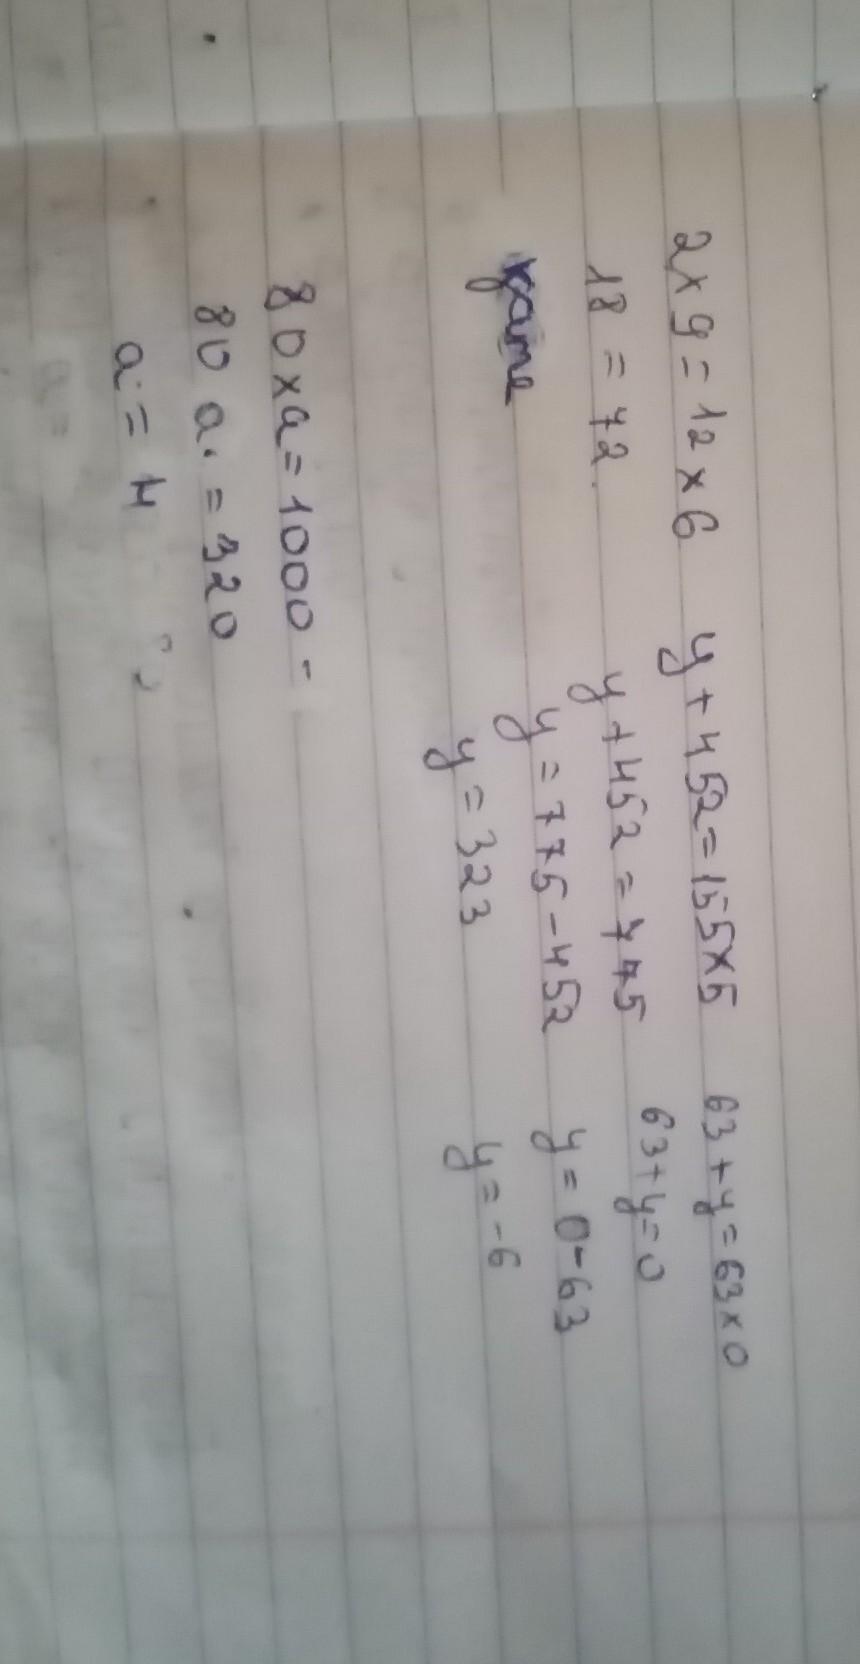 2 x 9 = 12 x 6
18 = 72
y + 452 = 155 x 5
y + 452 = 775
y = 775 - 452
y = 323
63 + y = 63 x 0
63 + y = 0
y = 0 - 63
y = -6
80 x a = 1000 -
80 a. = 320
a = 4